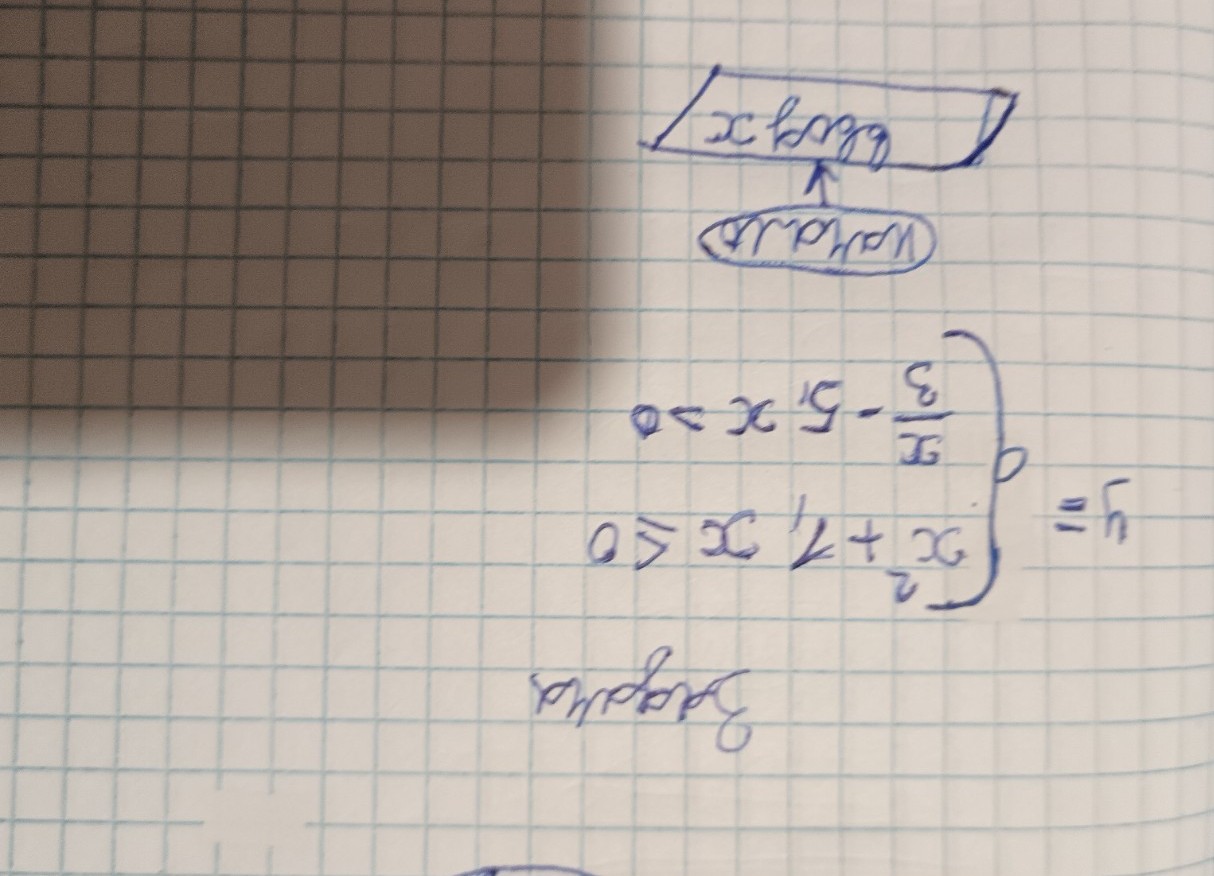 Задача
y = { x² + 1, x ≤ 0
x/3 - 5, x > 0
начало
ввод x